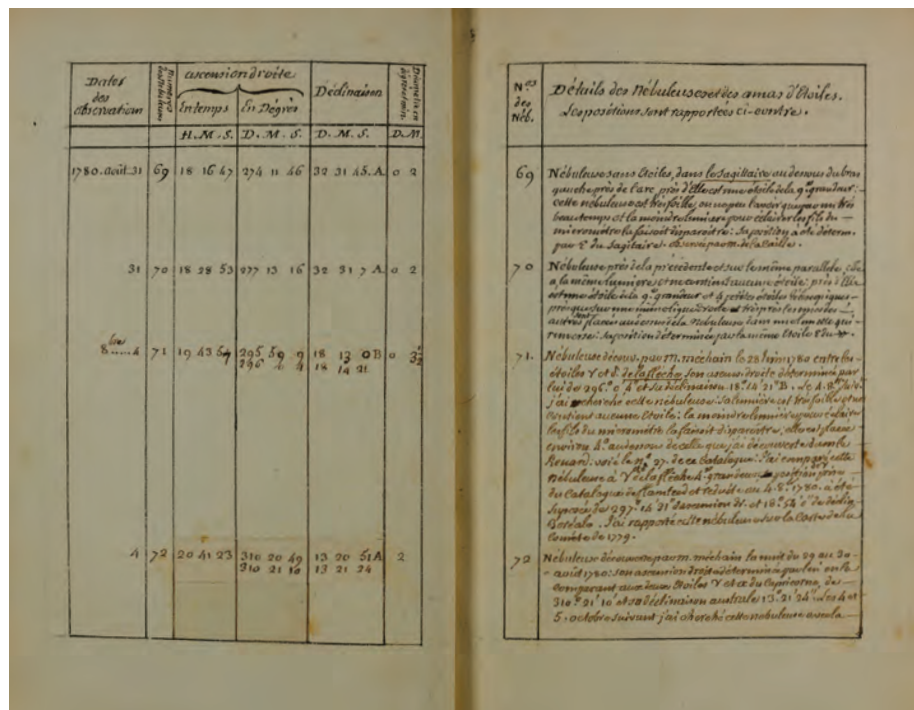 Dates des observation
Numero des Nebuleus.
ascension droite
En temps
En Dégrés
Déclinaison
Diametre en
H. M. S.
D. M. S.
D. M. S.
D. M.
1780. août 31 69 18 16 47 274 11 46 32 31 45. A. 0 2
31 70 18 28 53 277 13 16 32 31 7 A. 0 2
8.bre 4 71 19 43 57 295 59 9 18 13 0 B 0 3½
296 0 4 18 14 21
4 72 20 41 23 310 20 49 13 20 51 A 2
310 21 10 13 21 24
N.os des Néb.
Détails des Nébuleuses et des amas d'étoiles.
Les positions sont rapportées ci-contre.
69 Nébuleuse sans étoiles, dans le Sagittaire au dessous du bras
gauche près de l'arc, près d'elle est une étoile de la 9.e grandeur:
cette nébuleuse est très foible, on ne peut la voir que par un très
beau temps et la moindre lumiere pour éclairer les fils du
micromètre la faisoit disparoître: sa position a été déterm.
par ε du Sagitaire. observée par m. de la Caille.
70 Nébuleuse près de la précédente et sur le même parallele, elle
a la même lumiere et ne contient aucune étoile: près d'elle
est une étoile de la 9.e grandeur et 4 petites étoiles télescopiques
presque sur une même ligne droite et très près les unes des
autres placées au dessus de la nébuleuse dans une lunette qui
renverse: sa position déterminée par la même étoile ε du
71. Nébuleuse découv. par m. mechain le 28 juin 1780 entre les
étoiles γ et δ. de la flèche. son ascens. droite déterminée par
lui de 296.° 0' 4" et sa déclinaison. 18.° 14' 21" B. Le 4. 8.bre
j'ai cherché cette nébuleuse: sa lumière est très foible et ne
contient aucune étoile: la moindre lumiere pour éclairer
les fils du micromètre la faisoit disparoître: elle est placée
environ 4.° au dessous de celle que j'ai découverte dans le
Renard: voïé le n.° 27. de ce Catalogue. J'ai comparé cette
nébuleuse à γ de la flèche 4.e grandeur position prise
du Catalogue de flamsteed et réduite au 4. 8.bre 1780. a été
supposée de 297.° 14' 21" d'ascension dr. et 18.° 54' 0" de déclin.
Boréale. J'ai rapporté cette nébuleuse sur la Carte de la
Comète de 1779.
72 Nébuleuse découverte par m. méchain la nuit du 29 au 30
août 1780: son ascension droite déterminée par lui en la
comparant aux deux étoiles γ et α du Capricorne, de
310.° 21' 10" et sa déclinaison australe 13.° 21' 24". Les 4 et
5. octobre suivant j'ai cherché cette nébuleuse avec la